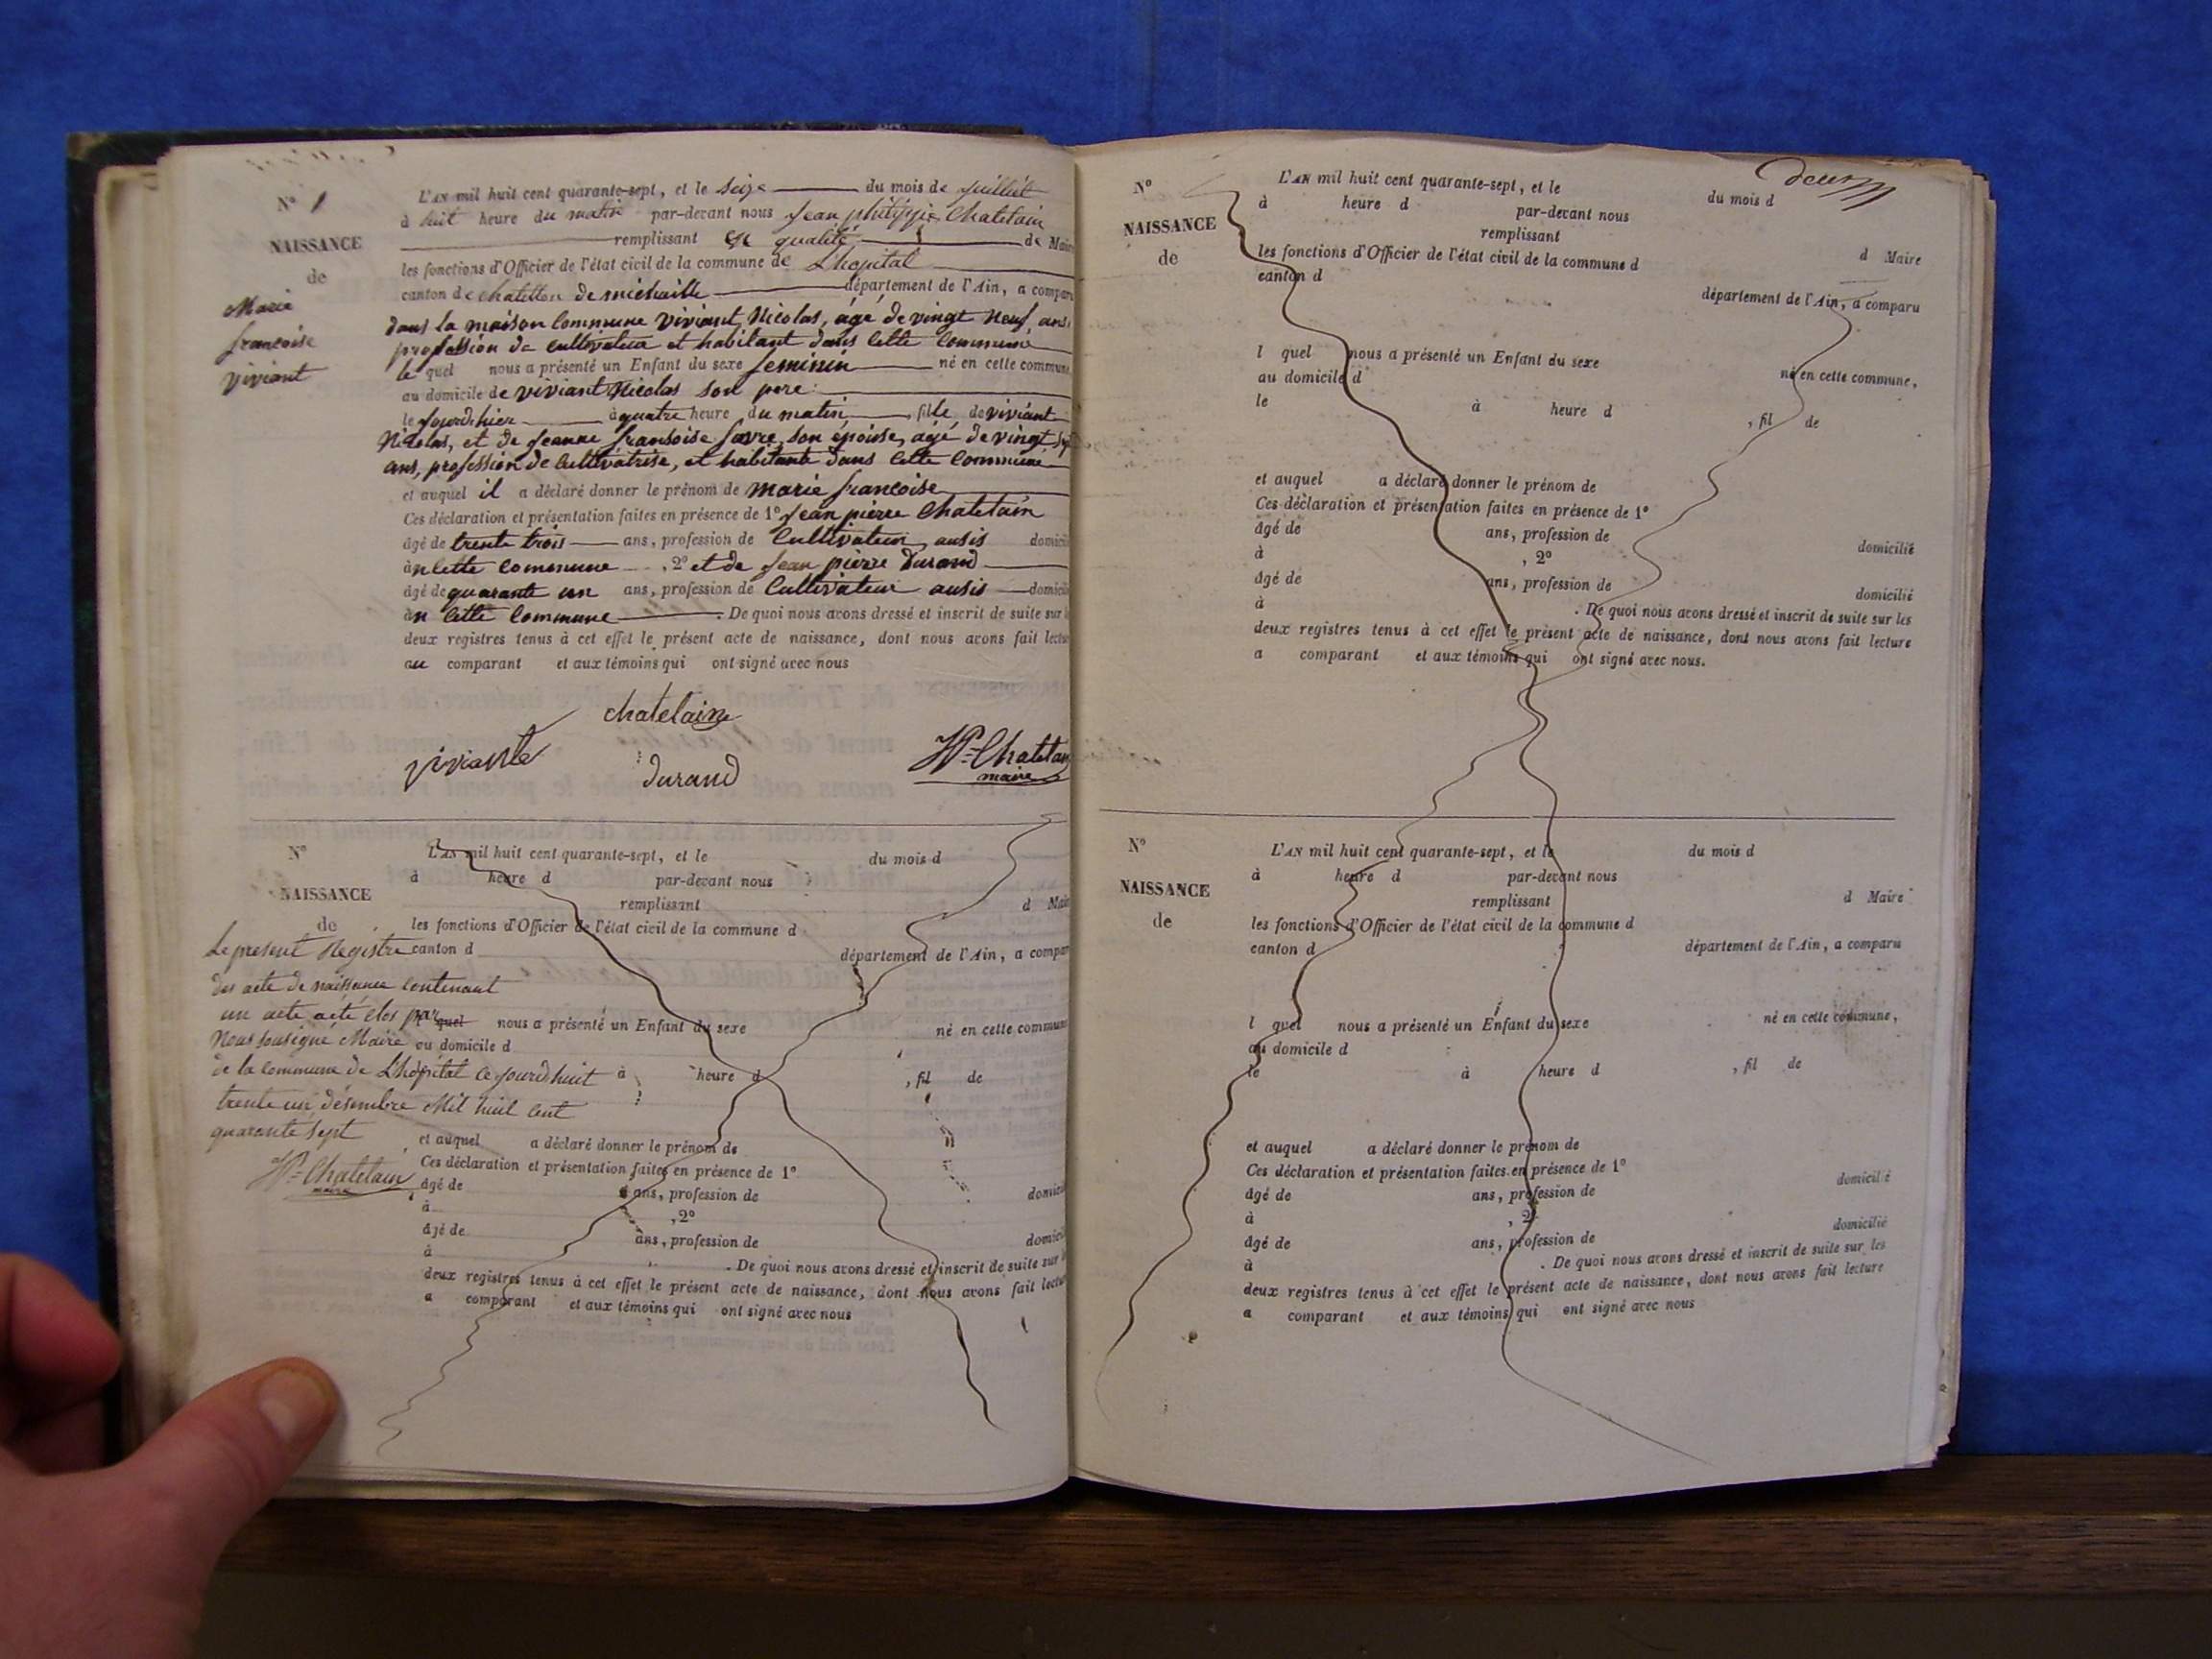 N° 1
NAISSANCE
de
Marie
francoise
viviant
L'AN mil huit cent quarante-sept, et le seize du mois de juillet
à huit heure du matin par-devant nous jean philippe Chatelain
remplissant en qualité de Maire
les fonctions d'Officier de l'état civil de la commune de L'hopital
canton de chatillon de michaille département de l'Ain, a comparu
dans la maison Commune viviant Nicolas, agé de vingt neuf ans
profession de cultivateur et habitant dans cette Commune
le quel nous a présenté un Enfant du sexe feminin né en cette commune
au domicile de viviant Nicolas son pere
le jourdhier à quatre heure du matin, fille de viviant
Nicolas, et de jeanne fransoise favre, son épouse, agé de vingt sept
ans, profession de cultivatrise, et habitante dans cette Commune
et auquel il a déclaré donner le prénom de marie francoise
Ces déclaration et présentation faites en présence de 1° jean pierre Chatelain
âgé de trente trois ans, profession de Cultivateur ausis domicilié
àn cette commune, 2° et de jean pierre Durand
âgé de quarante un ans, profession de Cultivateur ausis domicilié
àn cette Commune. De quoi nous avons dressé et inscrit de suite sur les
deux registres tenus à cet effet le présent acte de naissance, dont nous avons fait lecture
au comparant et aux témoins qui ont signé avec nous
chatelaine
viviante
durand
JP=Chatelain
maire
N°
NAISSANCE
de
L'AN mil huit cent quarante-sept, et le du mois d
à heure d par-devant nous
remplissant d Maire
les fonctions d'Officier de l'état civil de la commune d
canton d département de l'Ain, a comparu
quel nous a présenté un Enfant du sexe né en cette commune
au domicile d
à heure d , fil de
et auquel a déclaré donner le prénom de
Ces déclaration et présentation faites en présence de 1°
âgé de ans, profession de domicilié
à , 2°
âgé de ans, profession de domicilié
à . De quoi nous avons dressé et inscrit de suite sur les
deux registres tenus à cet effet le présent acte de naissance, dont nous avons fait lecture
a comparant et aux témoins qui ont signé avec nous
Le present Registre
des acte de naissance contenant
un acte aété clos par
Nous sousigné Maire
de la commune de L'hopital ce jourdhuit
trente un désembre Mil huit cent
quarante sept
JP=Chatelain
maire
deux
N°
NAISSANCE
de
L'AN mil huit cent quarante-sept, et le du mois d
à heure d par-devant nous
remplissant d Maire
les fonctions d'Officier de l'état civil de la commune d
canton d département de l'Ain, a comparu
l quel nous a présenté un Enfant du sexe né en cette commune,
au domicile d
le à heure d , fil de
et auquel a déclaré donner le prénom de
Ces déclaration et présentation faites en présence de 1°
âgé de ans, profession de domicilié
à , 2°
âgé de ans, profession de domicilié
à . De quoi nous avons dressé et inscrit de suite sur les
deux registres tenus à cet effet le présent acte de naissance, dont nous avons fait lecture
a comparant et aux témoins qui ont signé avec nous.
N°
NAISSANCE
de
L'AN mil huit cent quarante-sept, et le du mois d
à heure d par-devant nous
remplissant d Maire
les fonctions d'Officier de l'état civil de la commune d
canton d département de l'Ain, a comparu
l quel nous a présenté un Enfant du sexe né en cette commune,
au domicile d
le à heure d , fil de
et auquel a déclaré donner le prénom de
Ces déclaration et présentation faites en présence de 1°
âgé de ans, profession de domicilié
à , 2°
âgé de ans, profession de domicilié
à . De quoi nous avons dressé et inscrit de suite sur les
deux registres tenus à cet effet le présent acte de naissance, dont nous avons fait lecture
a comparant et aux témoins qui ont signé avec nous